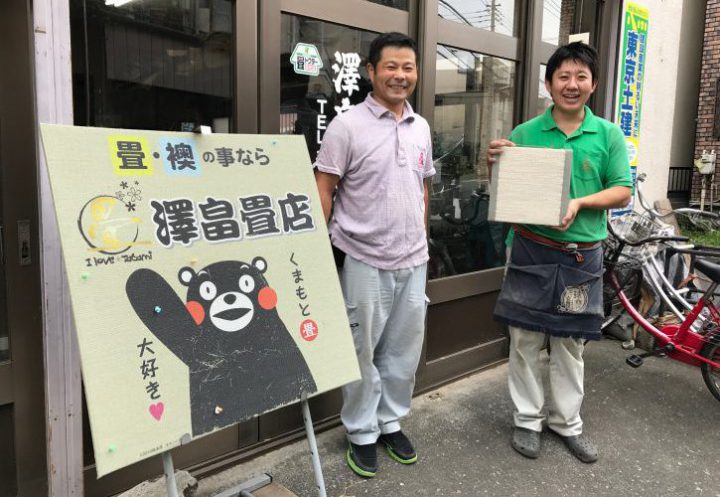 畳・襖の事なら
澤畠畳店
I love Tatami
くまもと畳
大好き
澤
TEL
東京土建